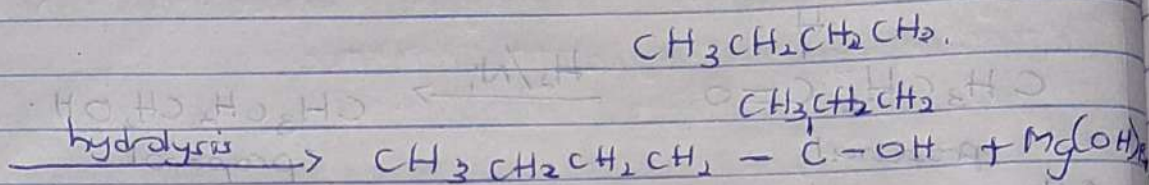 CH₃CH₂CH₂CH₂.
CH₃CH₂CH₂
hydrolysis → CH₃CH₂CH₂CH₂ – C – OH + Mg(OH)